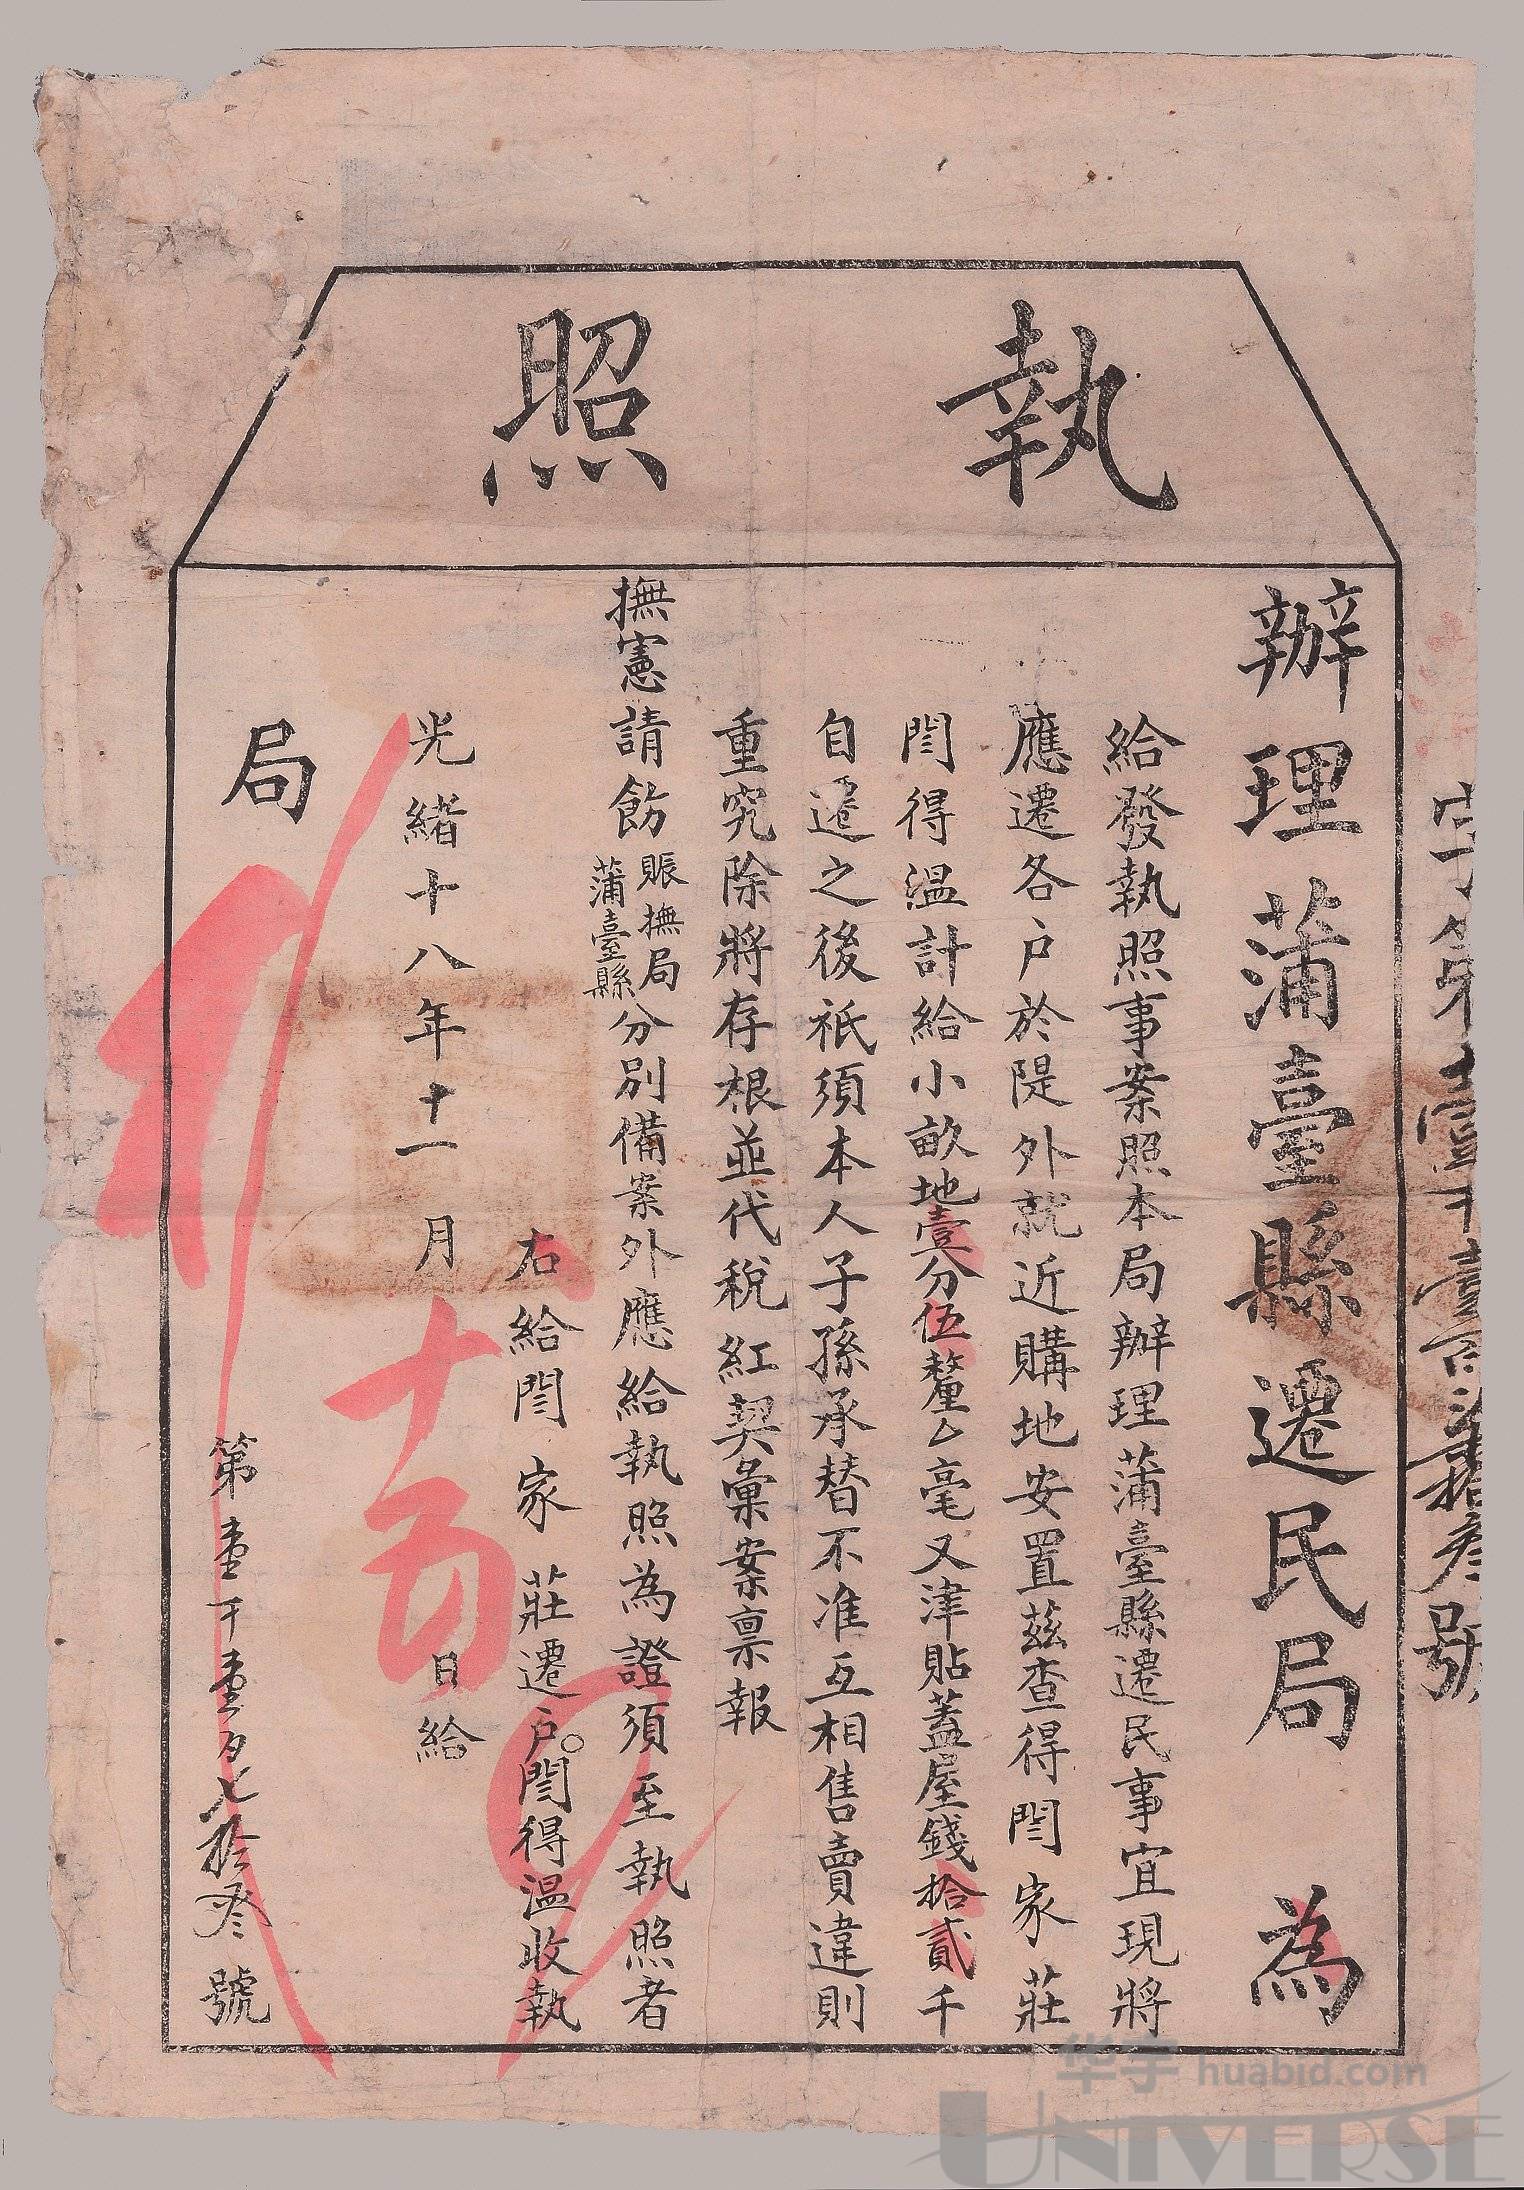 執照
字第壹千壹百柒拾叁號
辦理蒲臺縣遷民局 為
給發執照事案照本局辦理蒲臺縣遷民事宜現將
應遷各户於隄外就近購地安置茲查得閆家莊
閆得溫計給小畝地壹分伍釐厶毫又津貼蓋屋錢拾貳千
自遷之後祇須本人子孫承替不准互相售賣違則
重究除將存根並代稅紅契彙案稟報
撫憲請飭賑撫局蒲臺縣分別備案外應給執照為證須至執照者
右給閆家莊遷户閆得溫收執
光緒十八年十一月 日給
局
第壹千壹百七拾叁號
华宇 huabid.com
UNIVERSE